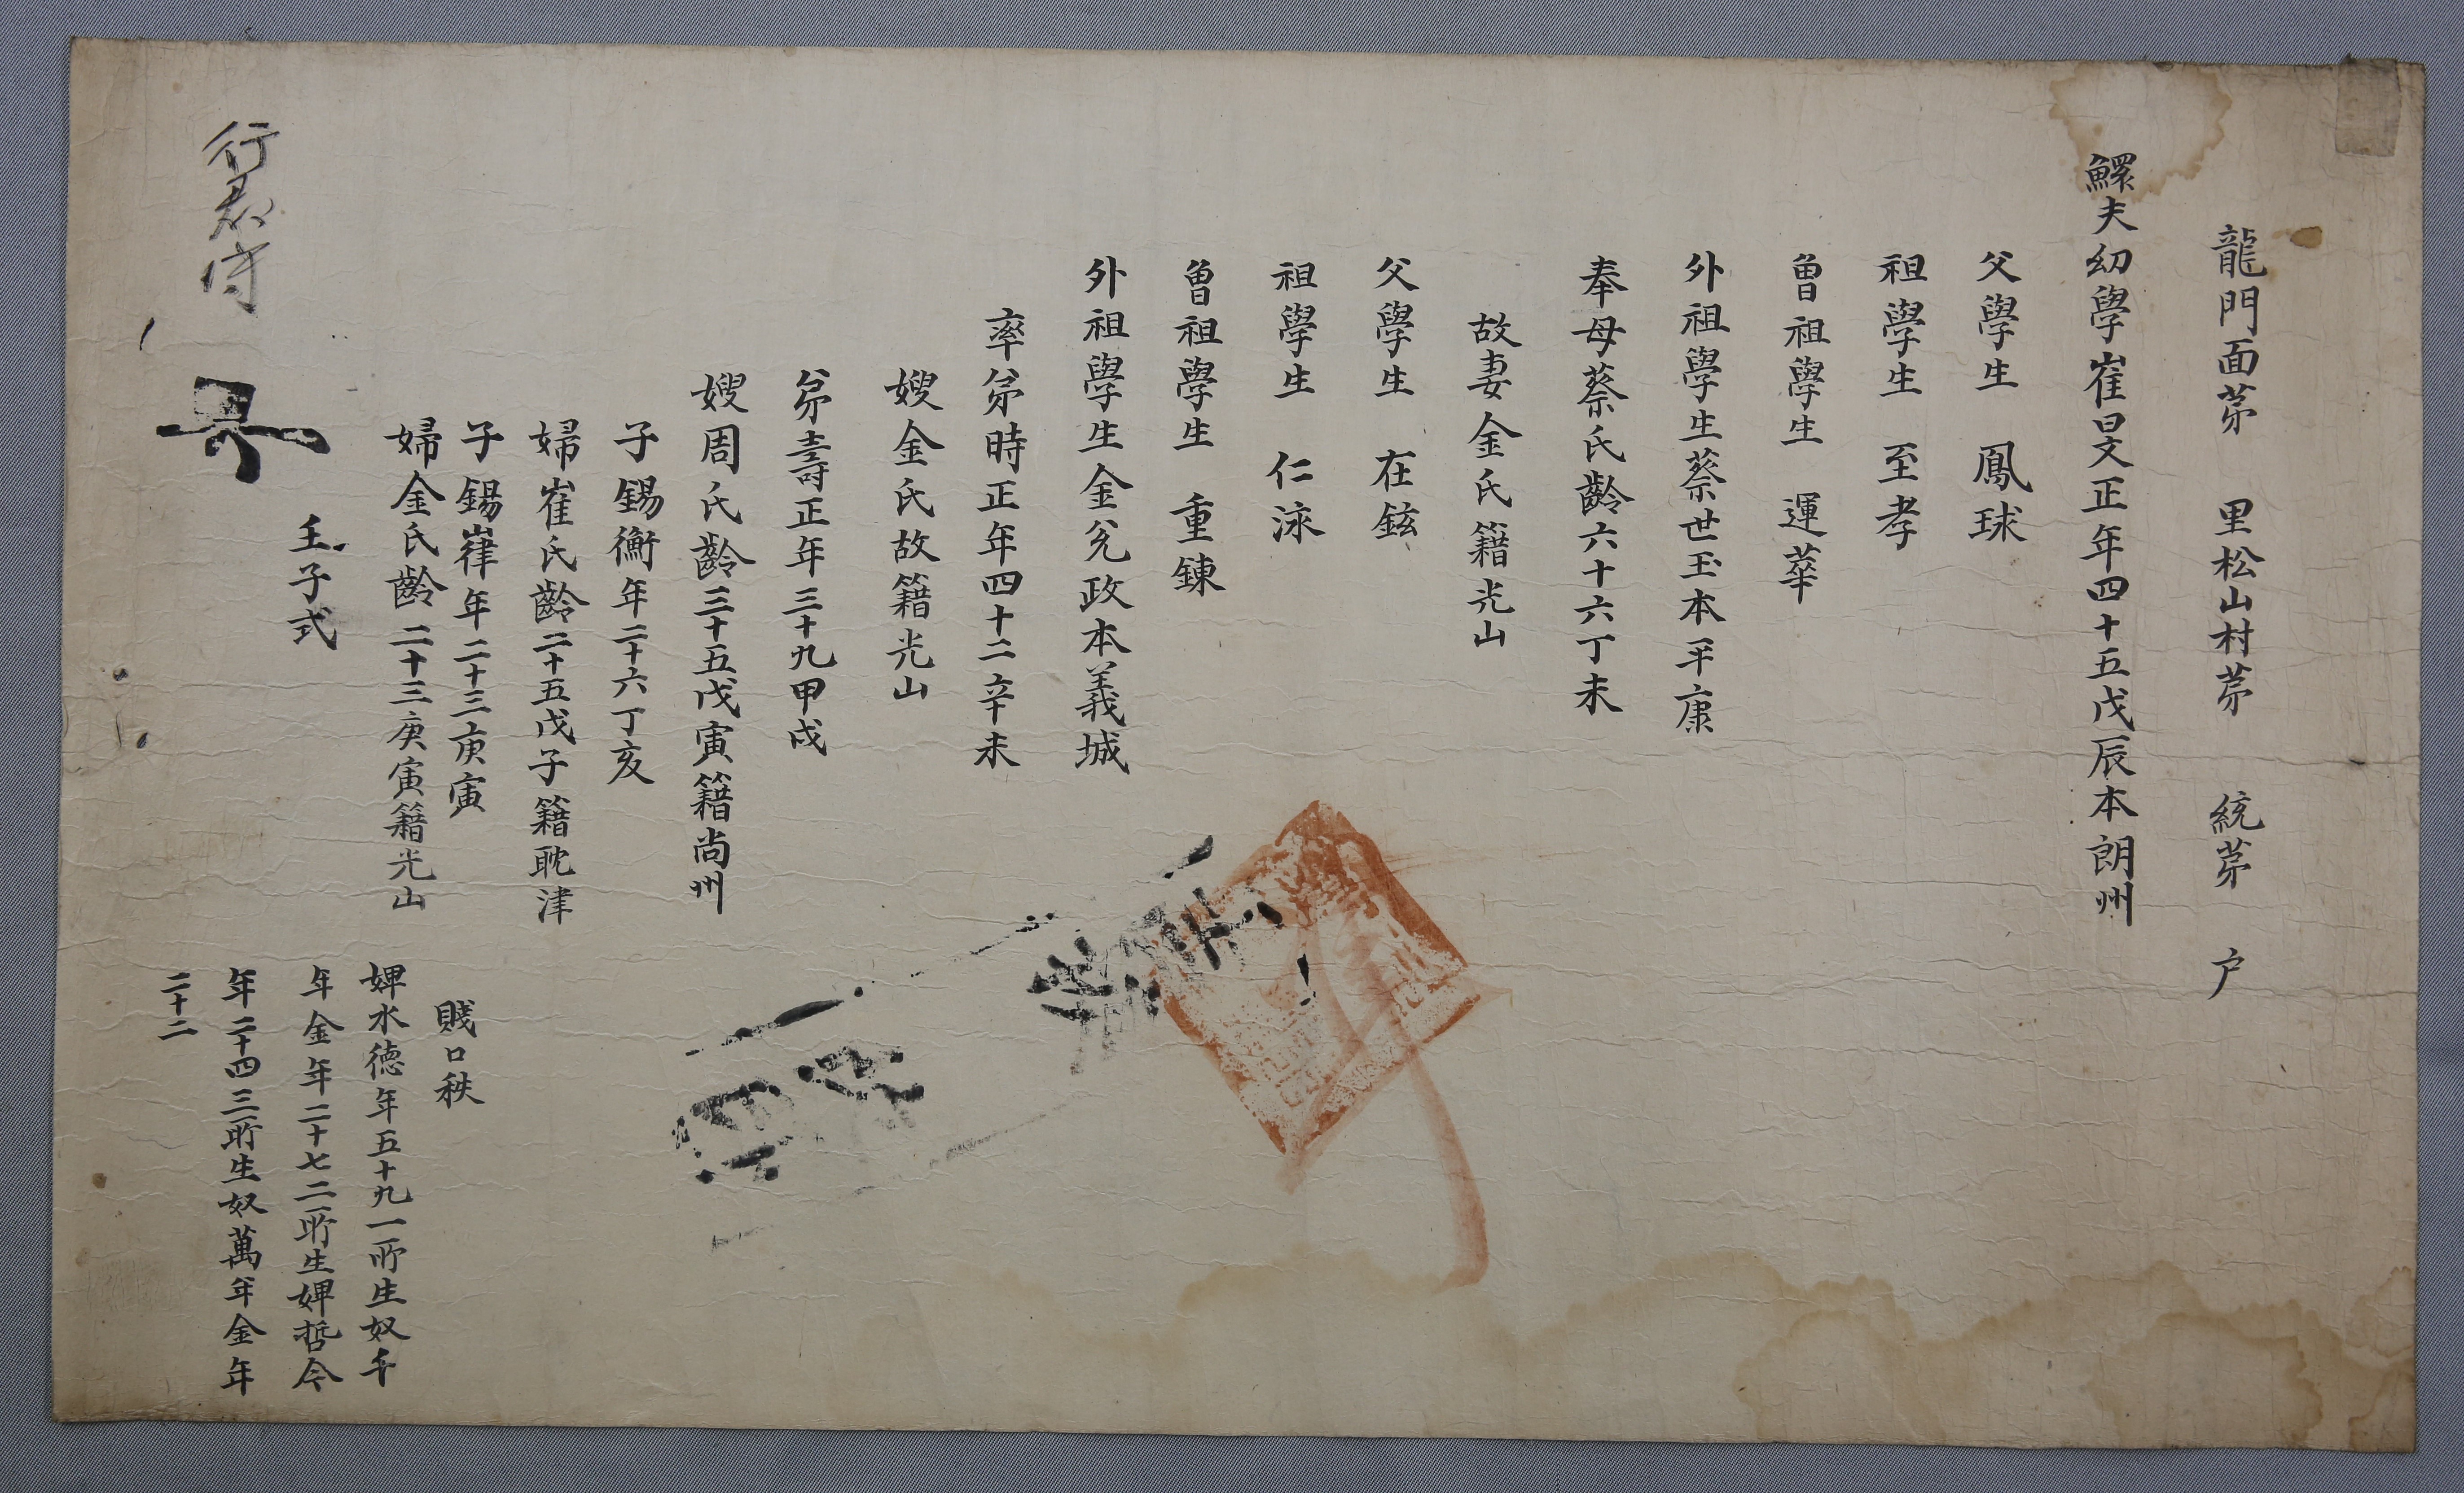 龍門面苐 里松山村苐 統苐 户
鰥夫幼學崔旻正年四十五戊辰本朗州
父學生 鳳球
祖學生 至孝
曾祖學生 運莘
外祖學生蔡世玉本平康
奉母蔡氏齡六十六丁未
故妻金氏籍光山
父學生 在鉉
祖學生 仁泳
曾祖學生 重鍊
外祖學生金兊政本義城
率弟時正年四十二辛未
嫂金氏故籍光山
弟壽正年三十九甲戌
嫂周氏齡三十五戊寅籍尚州
子錫衡年二十六丁亥
婦崔氏齡二十五戊子籍耽津
子錫嵂年二十三庚寅
婦金氏齡二十三庚寅籍光山
壬子式
行郡守
賤口秩
婢水德年五十九一所生奴千
年金年二十七二所生婢哲今
年二十四三所生奴萬年金年
二十二